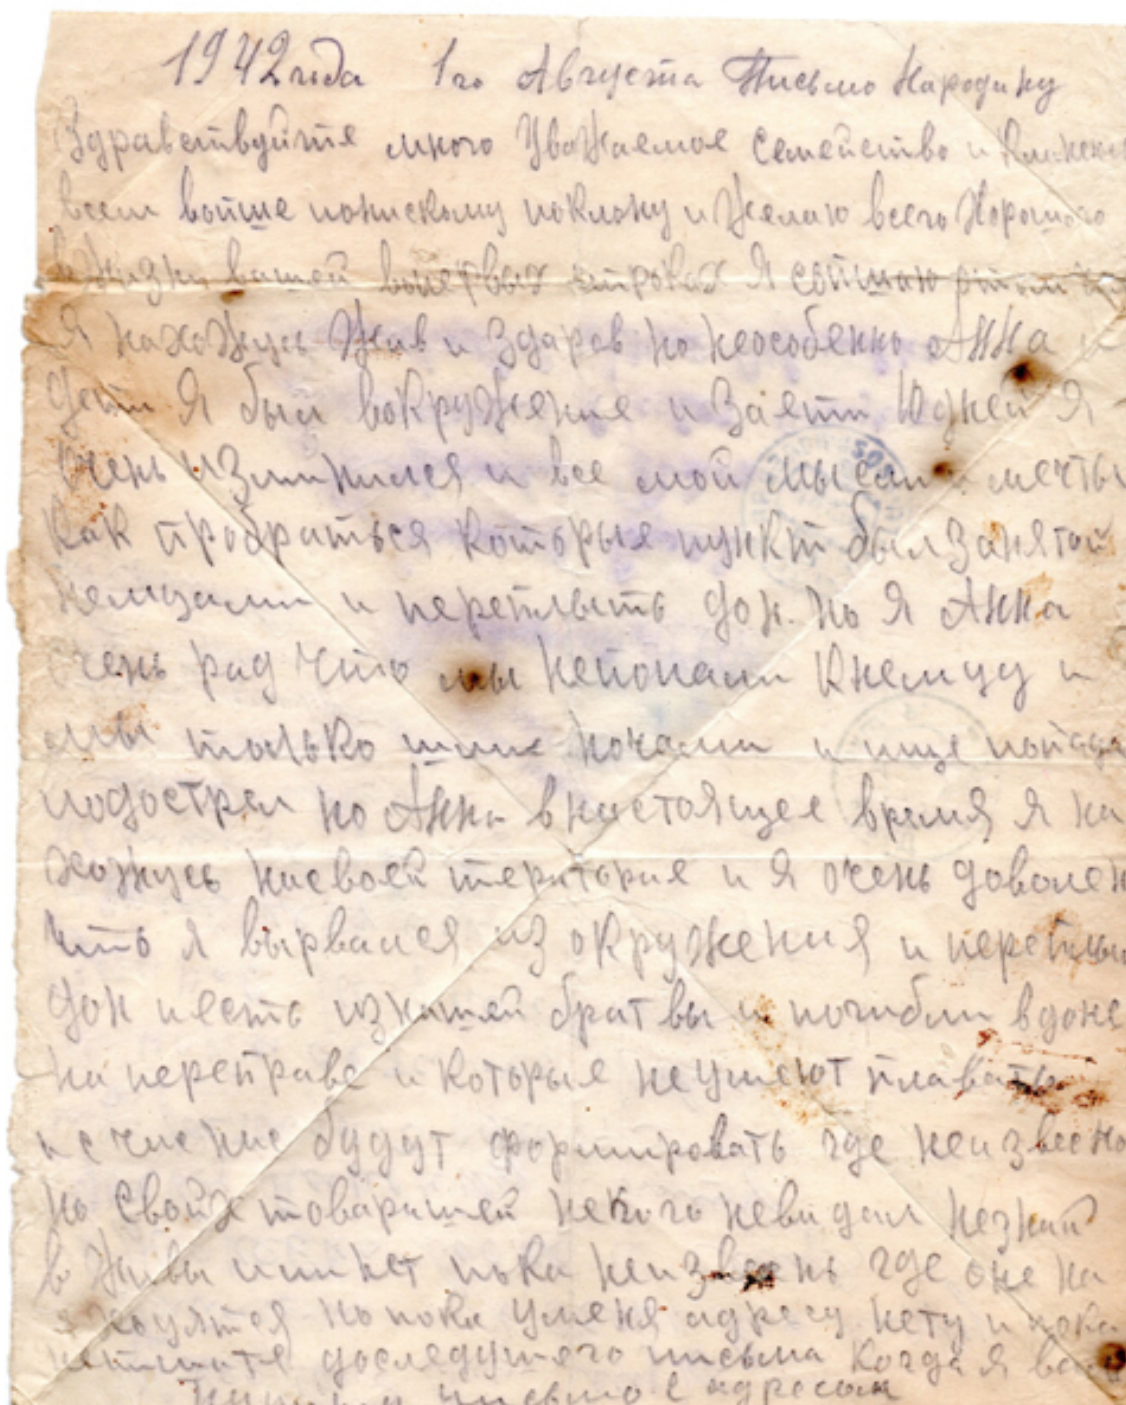 1942 года 1го Августа Письмо Народину
Здравствуйтя много Уважаемое Семейство и
всем вопше понискому поклону и Желаю всего Хорошого
в Жизни вашей вопервых строках Я сопшаю
Я нахожусь Жив и Здаров но неособенно Анна и
дети Я был вокружение и Заети 10 дней Я
очень изминился и все мои мысли и мечты
Как пробраться которыя пункт был Занятой
немцами и переплыть дон. но Я Анна
очень рад что мы непопали Кнемцу и
мы только шли ночами и ище
подострел но Анна внастоящее время Я на
хожусь насвоей територие и Я очень доволен
что я вырвался из окружения и переплыл
дон и есть изнашей братвы и погибли вдоне
на переправе и Которые неумеют плавать
и счас нас будут формировать где неизвесно
но Свойх товаришей некого невидал незнай
в Живы или нет пока неизвеснь где оне на
ходятся но пока Уменя адресу нету и пока
непишите доследушего письма Когда я вам
письмо с адресом